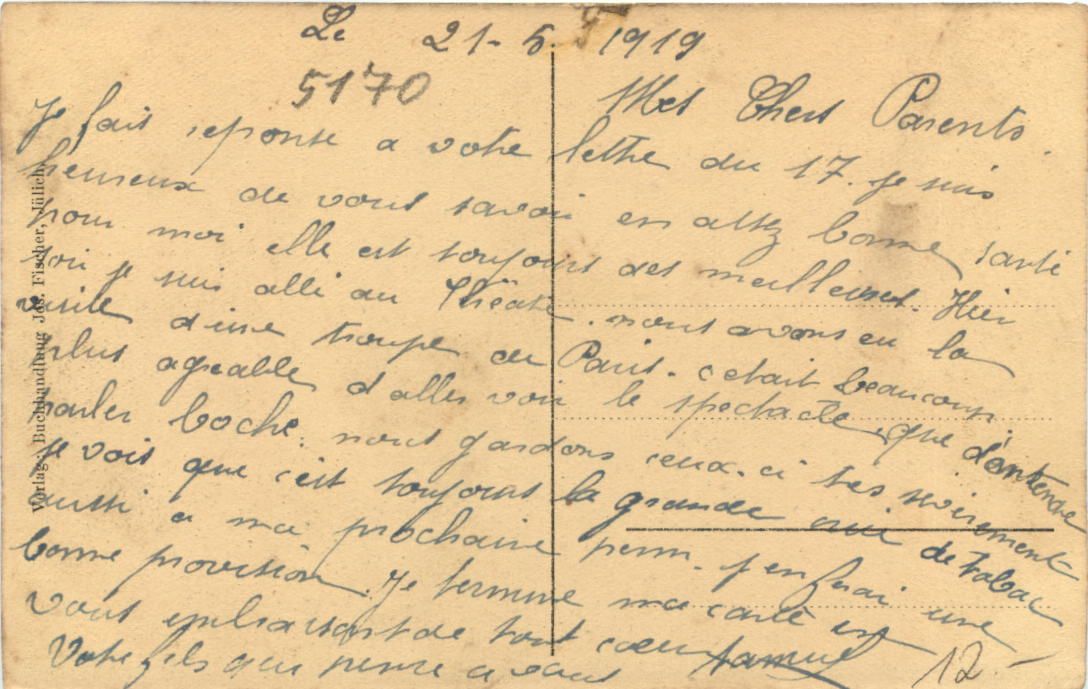 Le 21-5-1919
5170
Mes Chers Parents
Je fais reponse a votre lettre du 17. je suis
heureux de vous savoir en assez bonne santé
pour moi elle est toujours des meilleures. Hier
soir je suis allé au Théatre. nous avons eu la
visite d'une troupe de Paris. c'etait beaucoup
plus agreable d'aller voir le spectacle que d'entendre
parler boche. nous gardons ceux-ci tres sevirement
je vois que c'est toujours la grande de tabac
aussi a ma prochaine perm. j'en ferai une
bonne provision. Je termine ma carte en
vous embrassant de tout coeur
Votre fils qui pense a vous
12.-
Verlag: Buchhandlung Jos. Fischer, Jülich